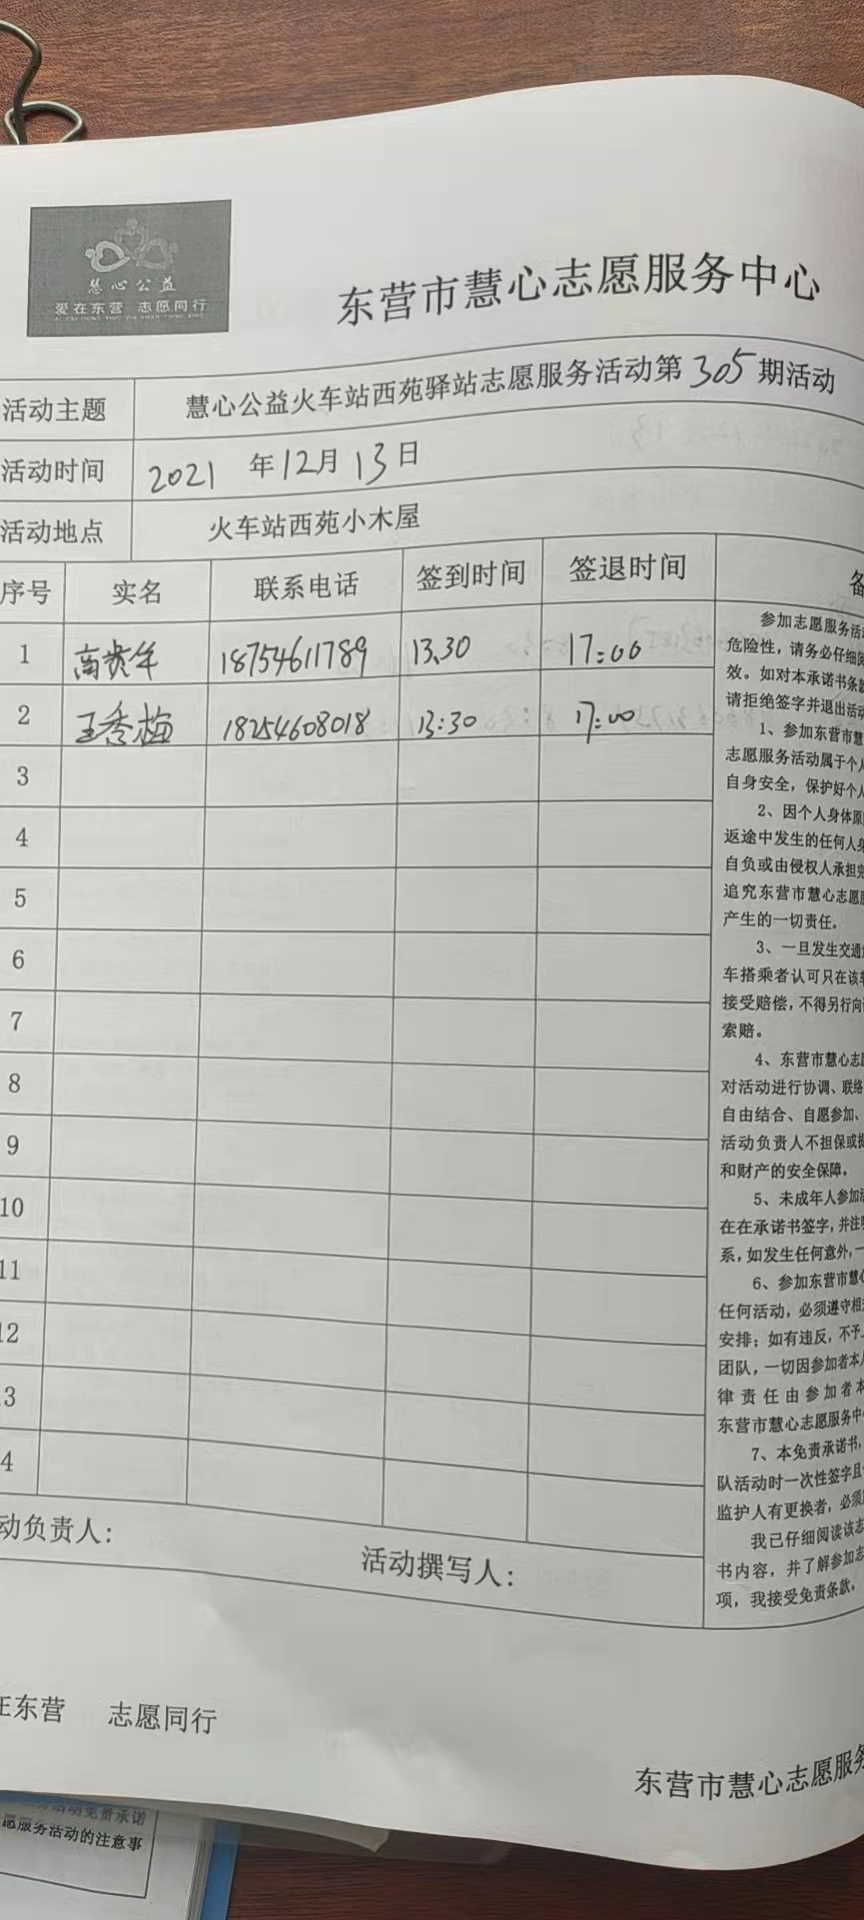 慧心公益
爱在东营 志愿同行
东营市慧心志愿服务中心
活动主题 慧心公益火车站西苑驿站志愿服务活动第305期活动
活动时间 2021 年12月13日
活动地点 火车站西苑小木屋
序号 实名 联系电话 签到时间 签退时间 备
1 高贵华 18754611789 13.30 17:00
2 王秀梅 18254608018 13:30 17:00
3
4
5
6
7
8
9
10
11
12
3
4
参加志愿服务活
危险性，请务必仔细阅
效。如对本承诺书条款
请拒绝签字并退出活动
1、参加东营市慧
志愿服务活动属于个人
自身安全，保护好个人
2、因个人身体原
返途中发生的任何人身
自负或由侵权人承担完
追究东营市慧心志愿服
产生的一切责任。
3、一旦发生交通
车搭乘者认可只在该车
接受赔偿，不得另行向
索赔。
4、东营市慧心志愿
对活动进行协调、联络
自由结合、自愿参加、
活动负责人不担保或提
和财产的安全保障。
5、未成年人参加
在在承诺书签字，并注明
系，如发生任何意外，一
6、参加东营市慧心
任何活动，必须遵守相
安排；如有违反，不予
团队，一切因参加者本人
律责任由参加者本
东营市慧心志愿服务中
7、本免责承诺书，
队活动时一次性签字且
监护人有更换者，必须
我已仔细阅读该志
书内容，并了解参加志
项，我接受免责条款。
动负责人： 活动撰写人：
在东营 志愿同行
东营市慧心志愿服务
活动免责承诺
愿服务活动的注意事